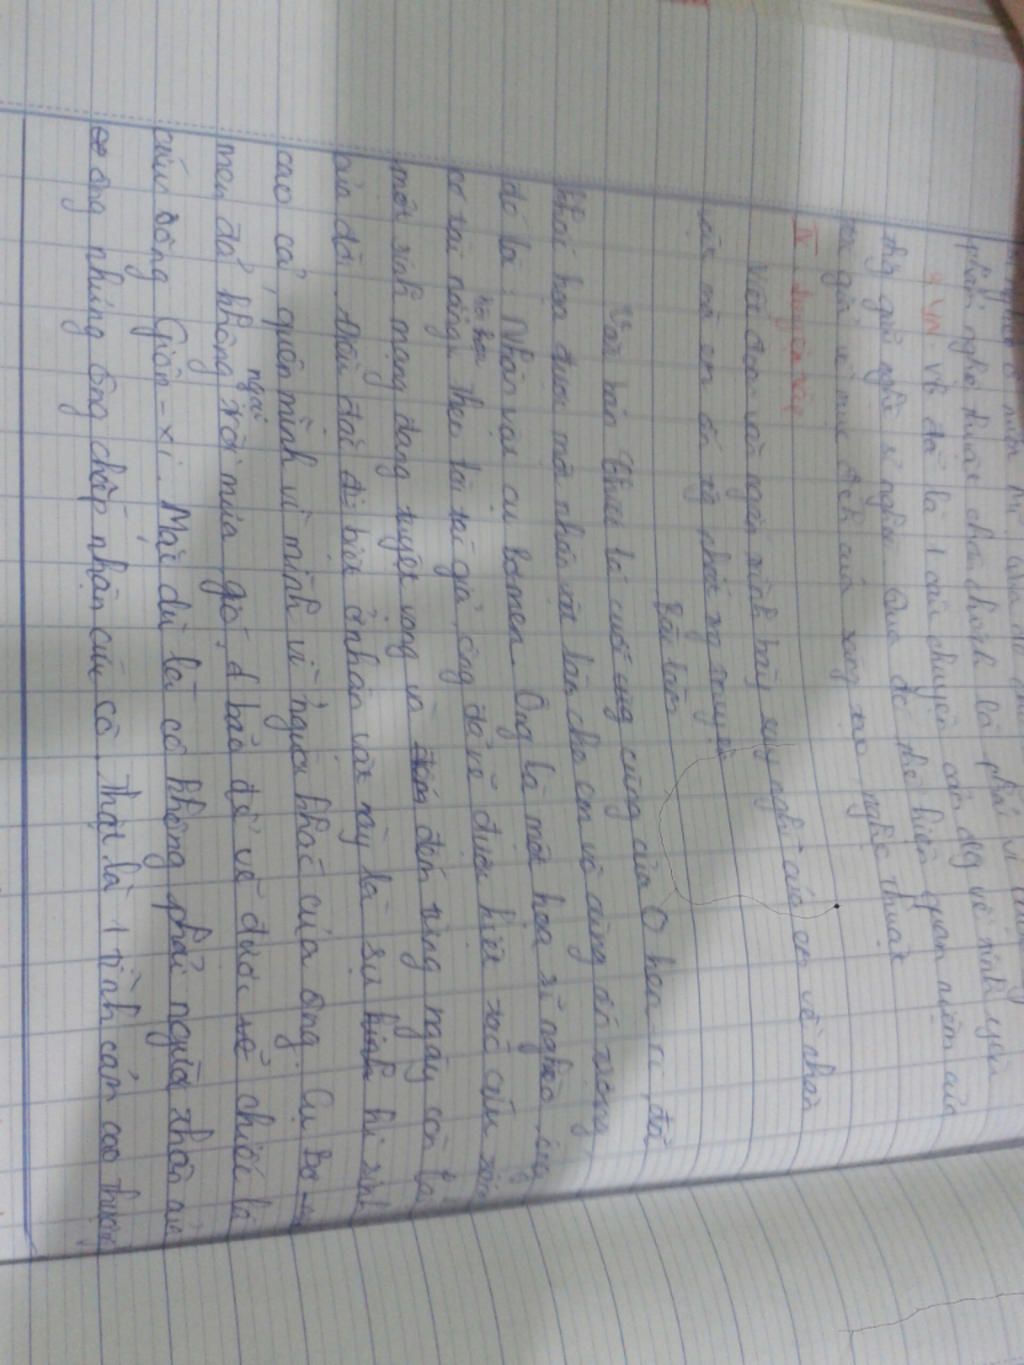 phẩm nghệ thuật chân chính là phải vì
4. YN Vb đã là 1 câu chuyện cảm động về tình yêu
giữa nghệ sĩ nghèo. Qua đó thể hiện quan niệm của
tác giả về mục đích của sáng tạo nghệ thuật
IV. Luyện tập
Viết đoạn văn ngắn trình bày suy nghĩ của em về nhân
vật mà em ấn tượng nhất trong truyện
Bài làm
Văn bản Chiếc lá cuối cùng của O hen-ri đã
khắc họa được một nhân vật làm cho em vô cùng ấn tượng
đó là: Nhân vật cụ Bơmen. Ông là một họa sĩ nghèo,
có tài năng hội họa theo tôi tác giả, cũng đã vẽ được kiệt tác cứu sống
một sinh mạng đang tuyệt vọng và đếm từng ngày còn lại
của đời. Điều đặc biệt ở nhân vật này là sự hi sinh
cao cả, quên mình vì mình vì người khác của ông. Cụ Bơ-
men đã không ngại trời mưa gió, bão để vẽ được chiếc lá
cứu sống Giôn-xi. Mặc dù là cô không phải người thân
ông nhưng ông chấp nhận cứu cô. Thật là 1 tình cảm cao thượng